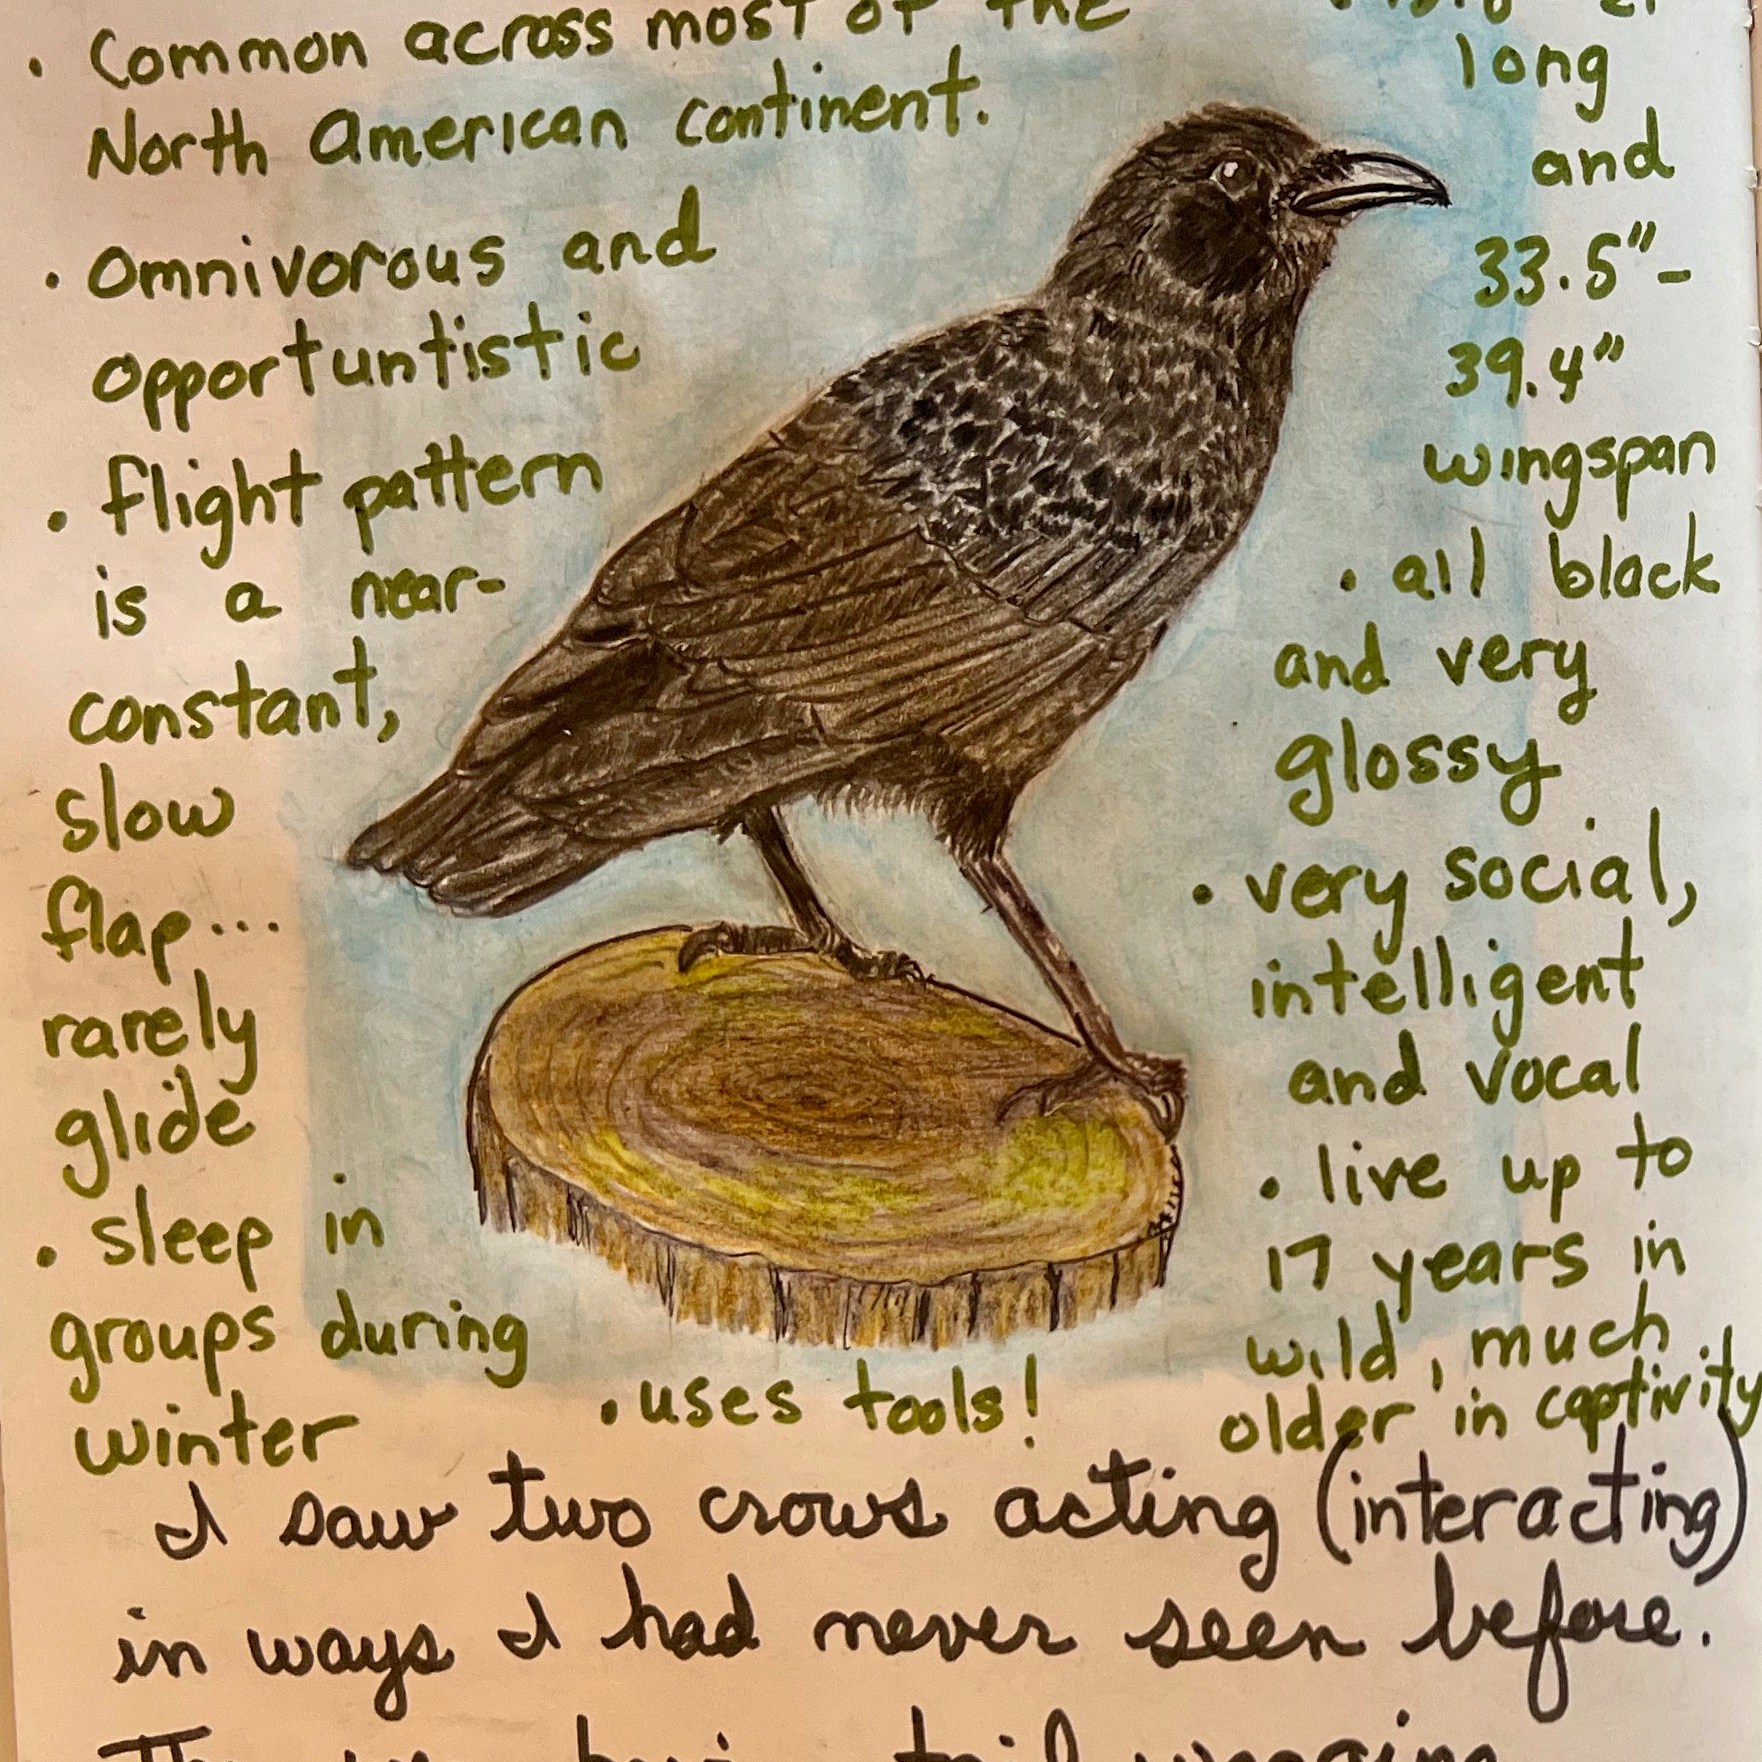 • Common across most of the
North American continent.
• Omnivorous and
opportuntistic
• flight pattern
is a near-
constant,
slow
flap...
rarely
glide
• sleep in
groups during
winter
• uses tools!
long
and
33.5"-
39.4"
wingspan
• all black
and very
glossy
• very social,
intelligent
and vocal
• live up to
17 years in
wild, much
older in captivity.
I saw two crows acting (interacting)
in ways I had never seen before.